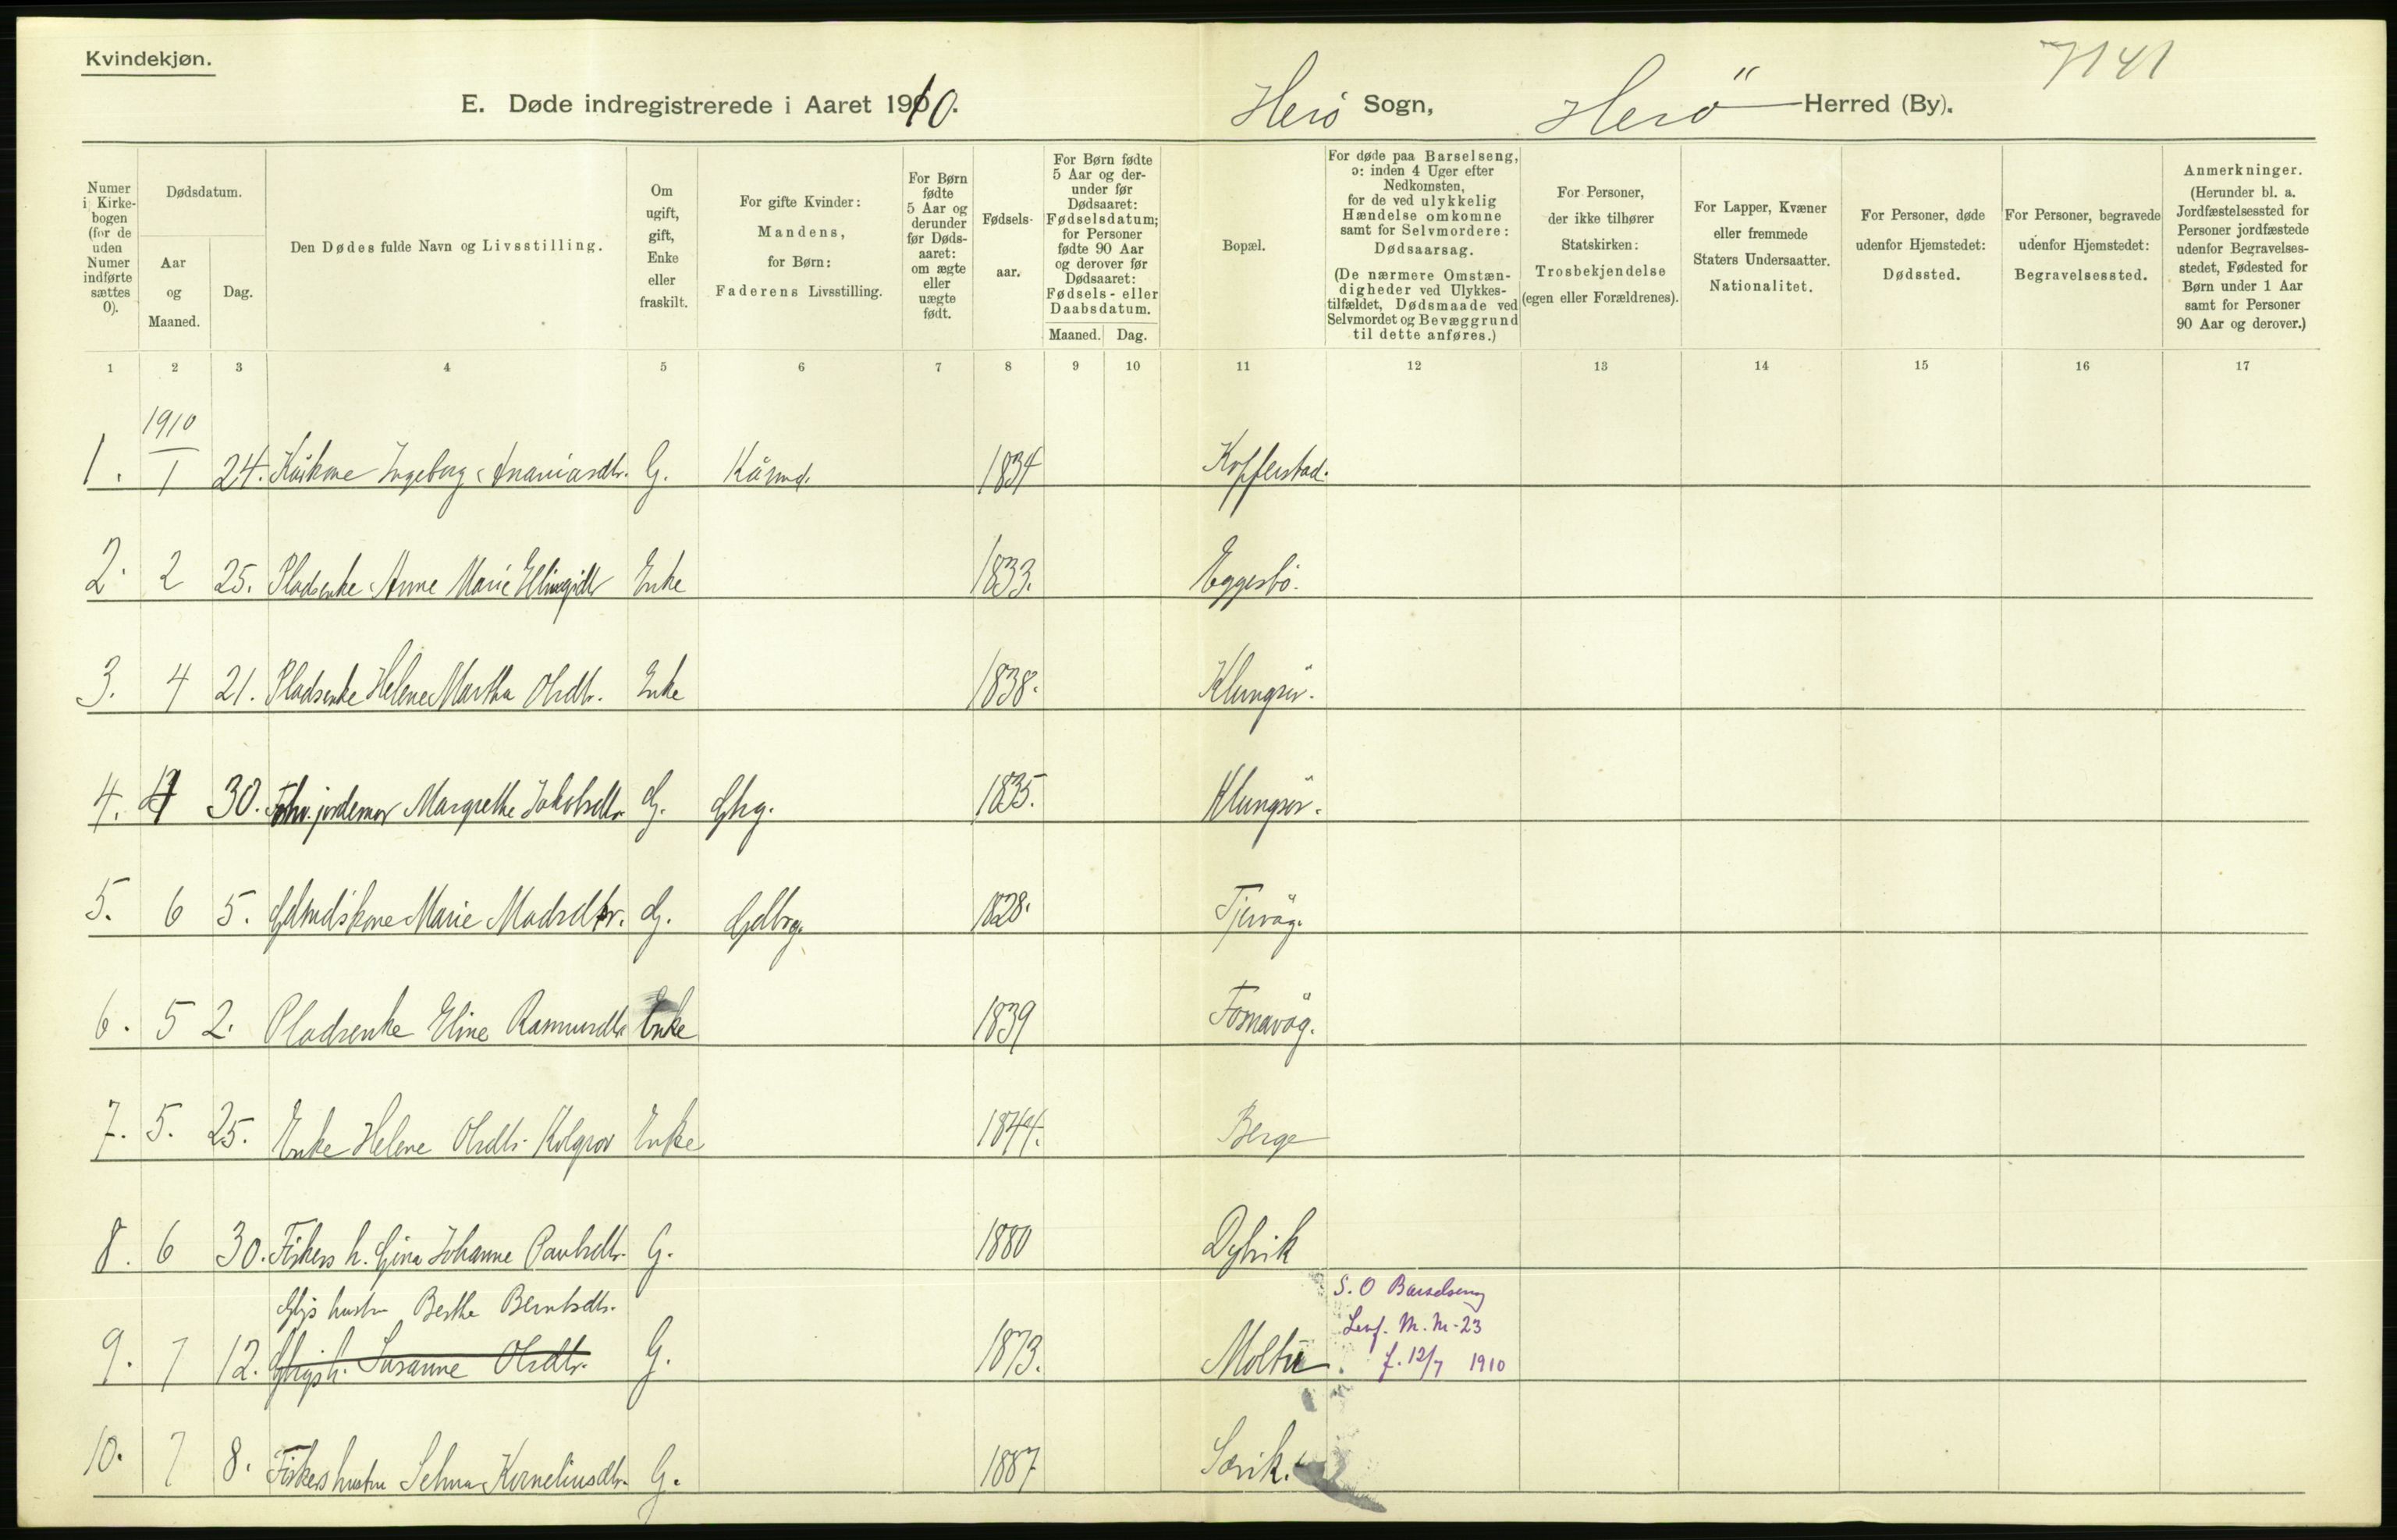 Kvindekjøn.
7141
E. Døde indregistrerede i Aaret 1910. Herö Sogn, Herö Herred (By).
Numer i Kirkebogen (for de uden Numer indførte sættes 0).
Dødsdatum.
Aar og Maaned.
Dag.
Den Dødes fulde Navn og Livsstilling.
Om ugift, gift, Enke eller fraskilt.
For gifte Kvinder: Mandens, for Børn: Faderens Livsstilling.
For Børn fødte 5 Aar og derunder før Dødsaaret: om ægte eller uægte født.
Fødselsaar.
For Børn fødte 5 Aar og derunder før Dødsaaret: Fødselsdatum; for Personer fødte 90 Aar og derover før Dødsaaret: Fødsels- eller Daabsdatum.
Maaned. Dag.
Bopæl.
For døde paa Barselseng, ɔ: inden 4 Uger efter Nedkomsten, for de ved ulykkelig Hændelse omkomne samt for Selvmordere: Dødsaarsag.
(De nærmere Omstændigheder ved Ulykkestilfældet, Dødsmaade ved Selvmordet og Bevæggrund til dette anføres.)
For Personer, der ikke tilhører Statskirken: Trosbekjendelse (egen eller Forældrenes).
For Lapper, Kvæner eller fremmede Staters Undersaatter. Nationalitet.
For Personer, døde udenfor Hjemstedet: Dødssted.
For Personer, begravede udenfor Hjemstedet: Begravelsessted.
Anmerkninger. (Herunder bl. a. Jordfæstelsessted for Personer jordfæstede udenfor Begravelsesstedet, Fødested for Børn under 1 Aar samt for Personer 90 Aar og derover.)
1 2 3 4 5 6 7 8 9 10 11 12 13 14 15 16 17
1910
1. 1 24. Kårkone Ingeborg Ananiasdtr. G. Kårmd. 1834 Kopperstad.
2. 2 25. Pladsenke Anne Marie Ellingsdtr Enke 1833. Eggesbö.
3. 4 21. Pladsenke Helene Martha Olsdtr. Enke 1838. Klungsör.
4. 4 30. jordemor Margrethe Jakobsdtr. G. Gbrg. 1835. Klungsör.
5. 6 5. Gdmdskone Marie Madsdtr. G. Gdbrg. 1828. Tjervåg.
6. 5 2. Pladsenke Eline Rasmusdtr Enke 1839 Fosnavåg.
7. 5. 25. Enke Helene Olsdtr. Kolgrov Enke 1844. Berge
8. 6 30. Fiskers h. Gina Johanne Paulsdtr. G. 1880 Dyrvik
hustru Berthe Berntsdtr.
S. O Barselseng
M. M. 23
9. 7 12. Gbrgs h. Susanne Olsdtr. G. 1873. Moltu. f. 12/7 1910
10. 7 8. Fiskers hustru Selma Korneliusdtr. G. 1887 Sævik.